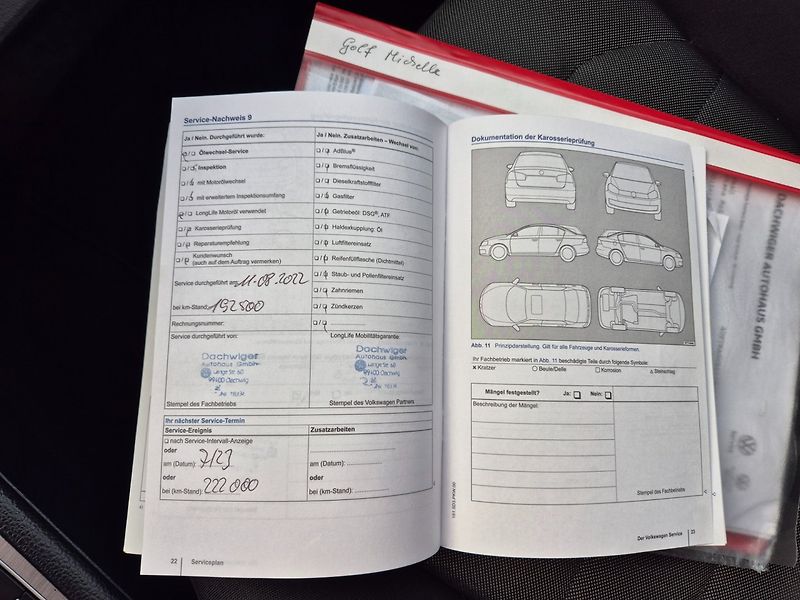 Golf Michelle
Service-Nachweis 9
Ja / Nein. Durchgeführt wurde:
Ölwechsel-Service
Inspektion
mit Motorölwechsel
mit erweitertem Inspektionsumfang
LongLife Motoröl verwendet
Karosserieprüfung
Reparaturempfehlung
Kundenwunsch
(auch auf dem Auftrag vermerken)
Service durchgeführt am: 11.08.2022
bei km-Stand: 192500
Rechnungsnummer:
Service durchgeführt von:
Dachwiger
Autohaus GmbH
Lange Str. 60
99100 Dachwig
Stempel des Fachbetriebs
Ja / Nein. Zusatzarbeiten – Wechsel von:
AdBlue®
Bremsflüssigkeit
Dieselkraftstofffilter
Gasfilter
Getriebeöl: DSG®, ATF
Haldexkupplung: Öl
Luftfiltereinsatz
Reifenfüllflasche (Dichtmittel)
Staub- und Pollenfiltereinsatz
Zahnriemen
Zündkerzen
LongLife Mobilitätsgarantie:
Dachwiger
Autohaus GmbH
Lange Str. 60
99100 Dachwig
Stempel des Volkswagen Partners
Ihr nächster Service-Termin
Service-Ereignis
nach Service-Intervall-Anzeige
oder
am (Datum): 7/23
oder
bei (km-Stand): 222 000
Zusatzarbeiten
am (Datum):
oder
bei (km-Stand):
22 Serviceplan
Dokumentation der Karosserieprüfung
Abb. 11 Prinzipdarstellung. Gilt für alle Fahrzeuge und Karosserieformen.
Ihr Fachbetrieb markiert in Abb. 11 beschädigte Teile durch folgende Symbole:
× Kratzer
○ Beule/Delle
□ Korrosion
△ Steinschlag
Mängel festgestellt? Ja: Nein:
Beschreibung der Mängel:
Stempel des Fachbetriebs
Der Volkswagen Service 23
DACHWIGER AUTOHAUS GMBH